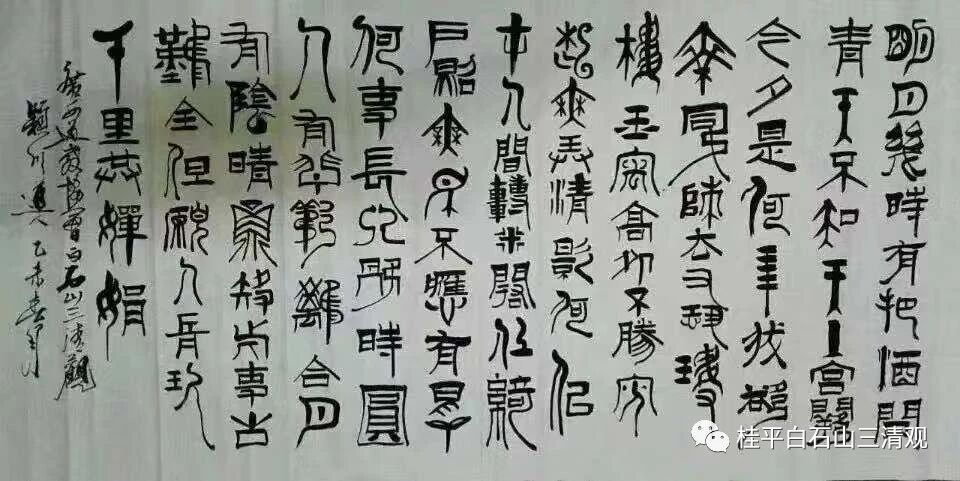 明月幾時有把酒問
青天不知天上宮闕
今夕是何年我欲
乘風歸去又恐瓊
樓玉宇高処不勝寒
起舞弄清影何似
在人間轉朱閣低綺
戶照無眠不應有恨
何事長向別時圓
人有悲歡離合月
有陰晴圓缺此事古
難全但願人長久
千里共嬋娟
廣西道教协會白石山三清觀
乙未春月
桂平白石山三清观